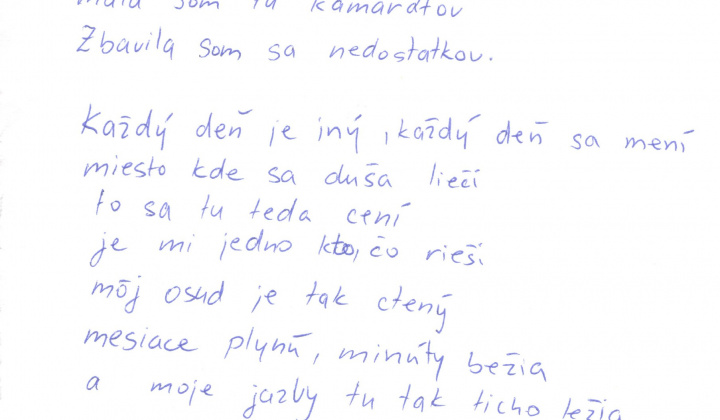 mala som tu kamarátov
Zbavila som sa nedostatkov.
Každý deň je iný, každý deň sa mení
miesto kde sa duša liečí
to sa tu teda cení
je mi jedno kto, čo rieši
môj osud je tak ctený
mesiace plynú, minúty bežia
a moje jazby tu tak ticho ležia